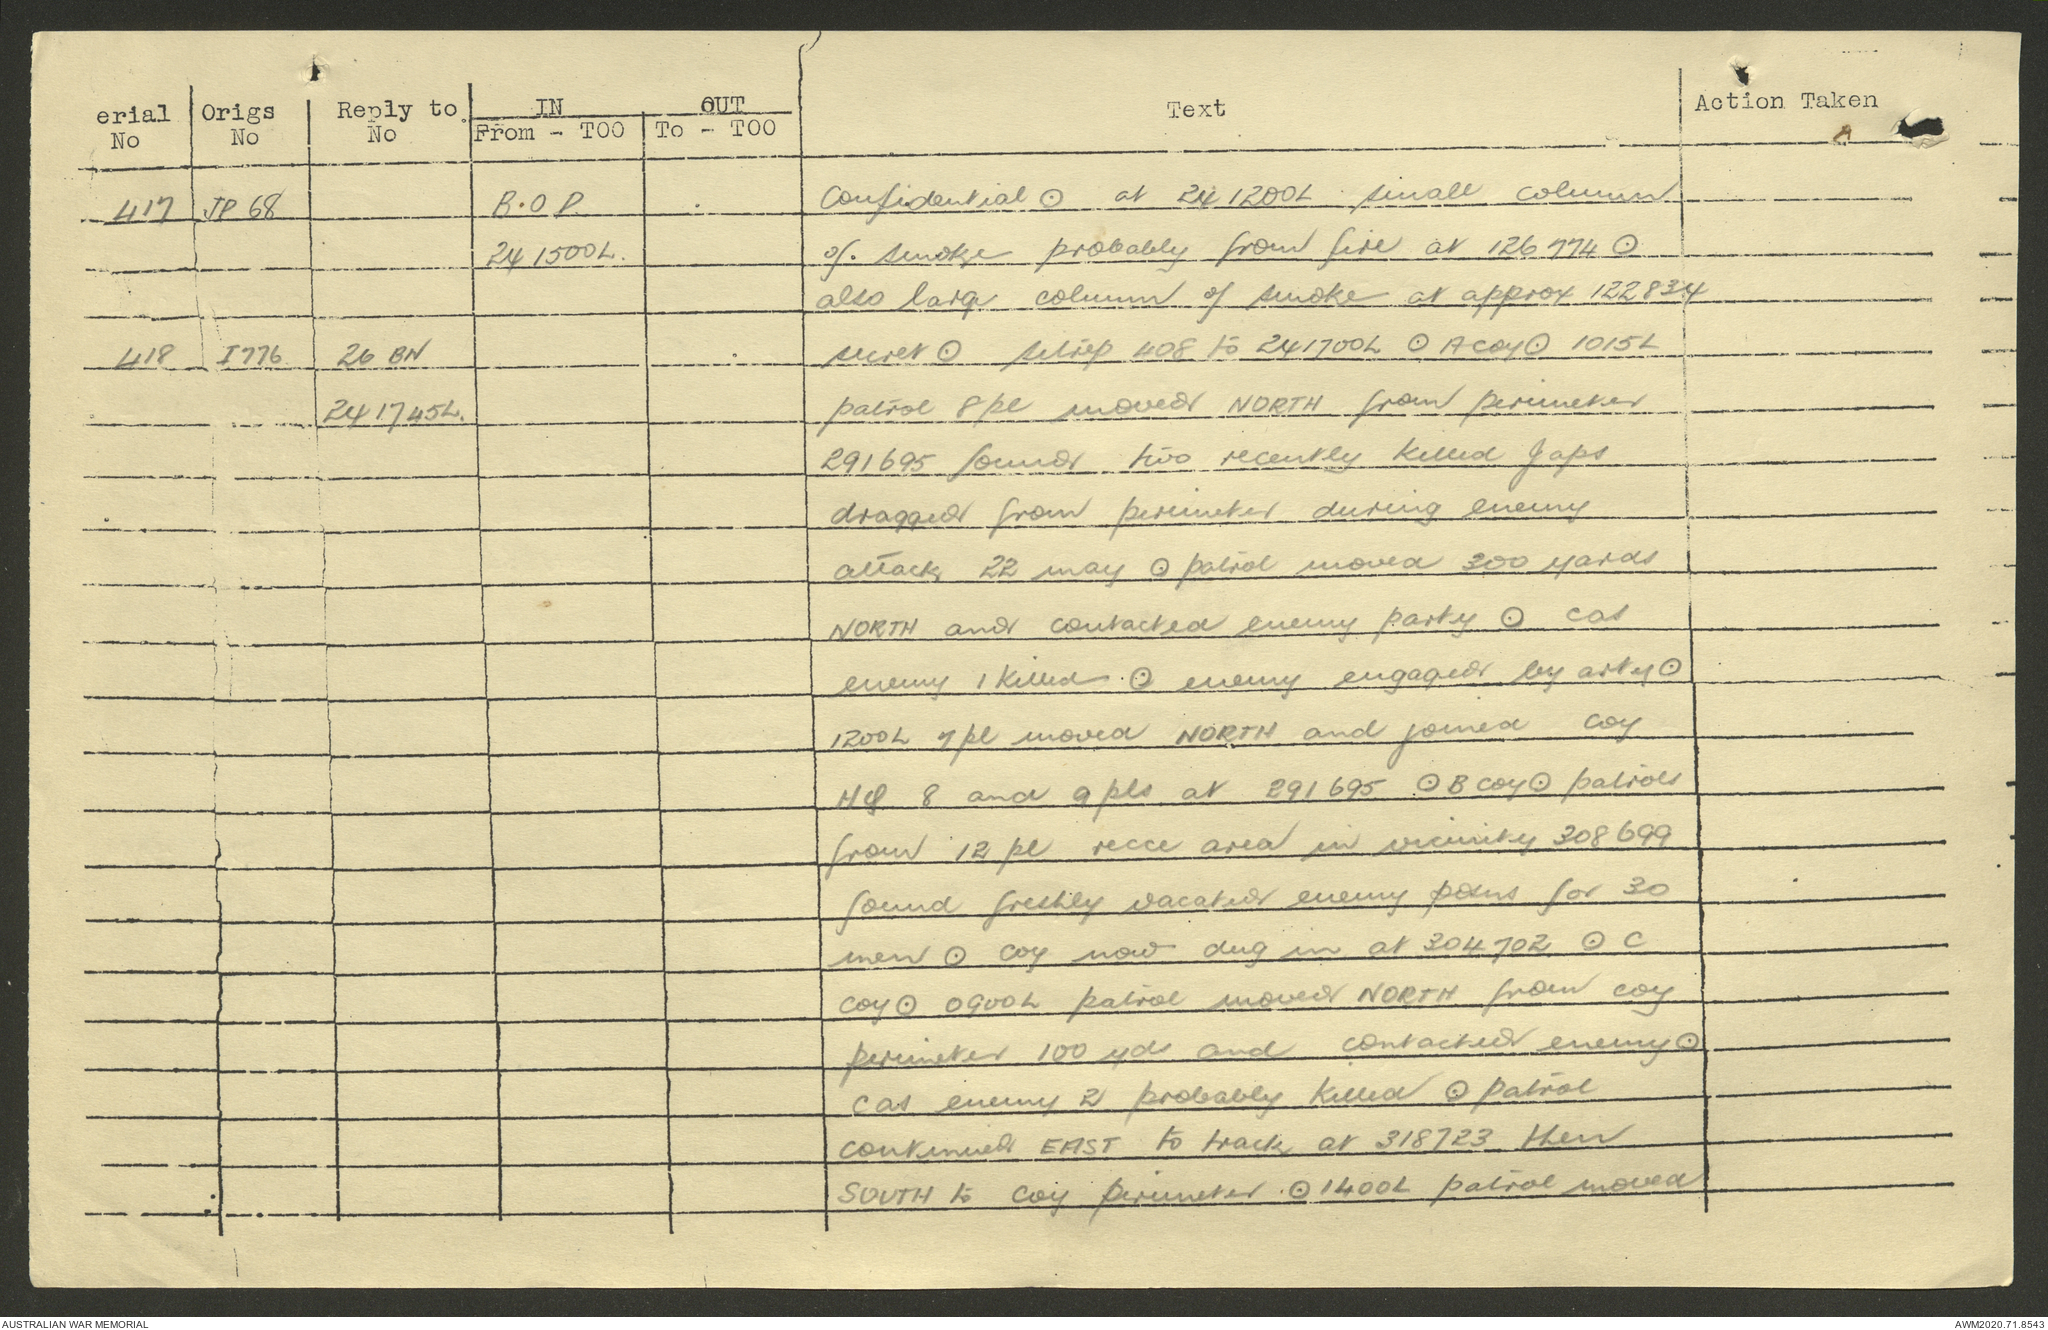 erial No Origs No Reply to No IN OUT Text Action Taken
From - TOO To - TOO
417 JP 68 B.O.P. Confidential ⊙ at 241200L small column
241500L. of smoke probably from fire at 126774 ⊙
also large column of smoke at approx 122834
418 I776 26 BN secret ⊙ sitrep 408 to 241700L ⊙ A coy ⊙ 1015L
241745L. patrol 8 pl moved NORTH from perimeter
291695 found two recently killed Japs
dragged from perimeter during enemy
attack 22 may ⊙ patrol moved 300 yards
NORTH and contacted enemy party ⊙ cas
enemy 1 killed ⊙ enemy engaged by arty ⊙
1200L 7 pl moved NORTH and joined coy
HQ 8 and 9 pls at 291695 ⊙ B coy ⊙ patrols
from 12 pl recce area in vicinity 308699
found freshly vacated enemy posns for 30
men ⊙ coy now dug in at 304702 ⊙ C
coy ⊙ 0900L patrol moved NORTH from coy
perimeter 100 yds and contacted enemy ⊙
cas enemy 2 probably killed ⊙ patrol
continued EAST to track at 318723 then
SOUTH to coy perimeter ⊙ 1400L patrol moved
AUSTRALIAN WAR MEMORIAL AWM2020.71.8543